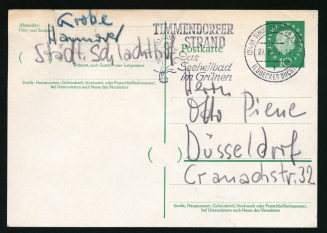 Absender:
Grobe
Hannover
Städt. Schlachthof
Wohnort, auch Zustell- oder Leitpostamt
Straße, Hausnummer, Gebäudeteil, Stockwerk oder Postschließfachnummer,
bei Untermietern auch Name des Vermieters
TIMMENDORFER
STRAND
das
Seeheilbad
im Grünen
Postkarte
10
LÜBECKER BUCHT
Herrn
Otto Piene
Düsseldorf
Cranachstr. 32
Straße, Hausnummer, Gebäudeteil, Stockwerk oder Postschließfachnummer,
bei Untermietern auch Name des Vermieters